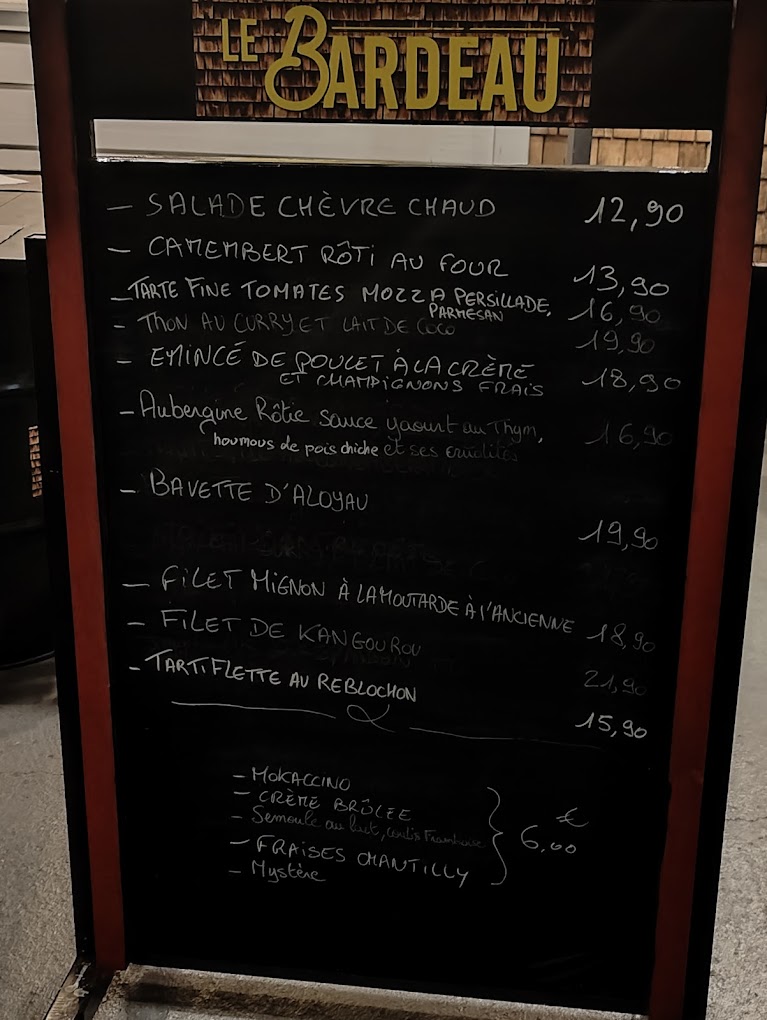 LE BARDEAU
- SALADE CHÈVRE CHAUD 12,90
- CAMEMBERT RÔTI AU FOUR 13,90
- TARTE FINE TOMATES MOZZA PERSILLADE, 16,90
PARMESAN
- THON AU CURRY ET LAIT DE COCO 19,90
- EMINCÉ DE POULET À LA CRÈME 18,90
ET CHAMPIGNONS FRAIS
- Aubergine Rôtie sauce yaourt au Thym, 16,90
houmous de pois chiche et ses crudités
- BAVETTE D'ALOYAU 19,90
- FILET MIGNON À LA MOUTARDE À l'ANCIENNE 18,90
- FILET DE KANGOUROU 21,90
- TARTIFLETTE AU REBLOCHON 15,90
- MOKACCINO
- CRÈME BRÛLÉE
- Semoule au lait, coulis Framboise
- FRAISES CHANTILLY
- Mystère
€
6,00